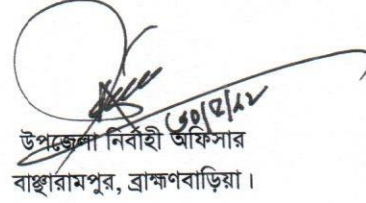 উপজেলা নির্বাহী অফিসার
বাঞ্ছারামপুর, ব্রাহ্মণবাড়িয়া।